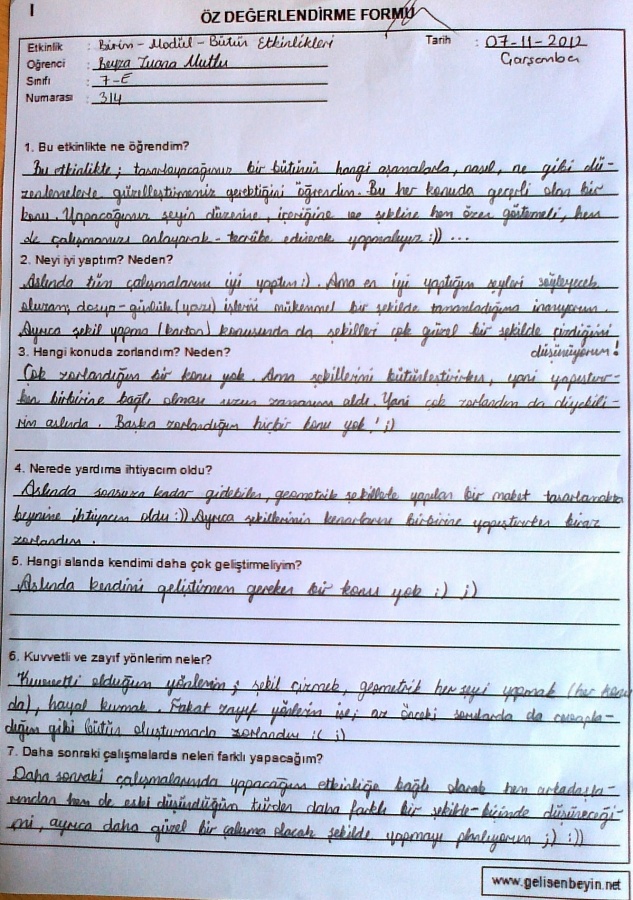 I
ÖZ DEĞERLENDİRME FORMU
Etkinlik : Birim - Modül - Bütün Etkinlikleri
Tarih : 07-11-2012
Çarşamba
Öğrenci : Beyza Tuana Mutlu
Sınıfı : 7-E
Numarası : 314
1. Bu etkinlikte ne öğrendim?
Bu etkinlikte; tasarlayacağımız bir bütünün hangi aşamalarla, nasıl, ne gibi dü-
zenlemelerle güzelleştirmemiz gerektiğini öğrendim. Bu her konuda geçerli olan bir
konu. Yapacağımız şeyin düzenine, içeriğine ve şekline hem özen göstermeli, hem
de çalışmamızı anlayarak - tecrübe edinerek yapmalıyız :)) ...
2. Neyi iyi yaptım? Neden?
Aslında tüm çalışmalarımı iyi yaptım :). Ama en iyi yaptığım şeyleri söyleyecek
olursam; dosya-günlük (yazı) işlerini mükemmel bir şekilde tamamladığıma inanıyorum.
Ayrıca şekil yapma (karton) konusunda da şekilleri çok güzel bir şekilde çizdiğimi
düşünüyorum!
3. Hangi konuda zorlandım? Neden?
Çok zorlandığım bir konu yok. Ama şekillerimi bütünleştirirken, yani yapıştırır-
ken birbirine bağlı olması uzun zamanımı aldı. Yani çok zorlandım da diyebili-
rim aslında. Başka zorlandığım hiçbir konu yok! ;)
4. Nerede yardıma ihtiyacım oldu?
Aslında sonsuza kadar gidebilen, geometrik şekillerle yapılan bir maket tasarlamakta
beynime ihtiyacım oldu :)) Ayrıca şekillerimin kenarlarını birbirine yapıştırırken biraz
zorlandım.
5. Hangi alanda kendimi daha çok geliştirmeliyim?
Aslında kendimi geliştirmem gereken bir konu yok :) ;)
6. Kuvvetli ve zayıf yönlerim neler?
Kuvvetli olduğum yönlerim; şekil çizmek, geometrik her şeyi yapmak (her konu
da), hayal kurmak. Fakat zayıf yönlerim ise; az önceki sorularda da cevapla-
dığım gibi bütün oluşturmada zorlandım :( ;)
7. Daha sonraki çalışmalarda neleri farklı yapacağım?
Daha sonraki çalışmalarımda yapacağım etkinliğe bağlı olarak hem arkadaşla-
rımdan hem de eski düşündüğüm türden daha farklı bir şekilde-biçimde düşüneceği-
mi, ayrıca daha güzel bir çalışma olacak şekilde yapmayı planlıyorum ;) :))
www.gelisenbeyin.net